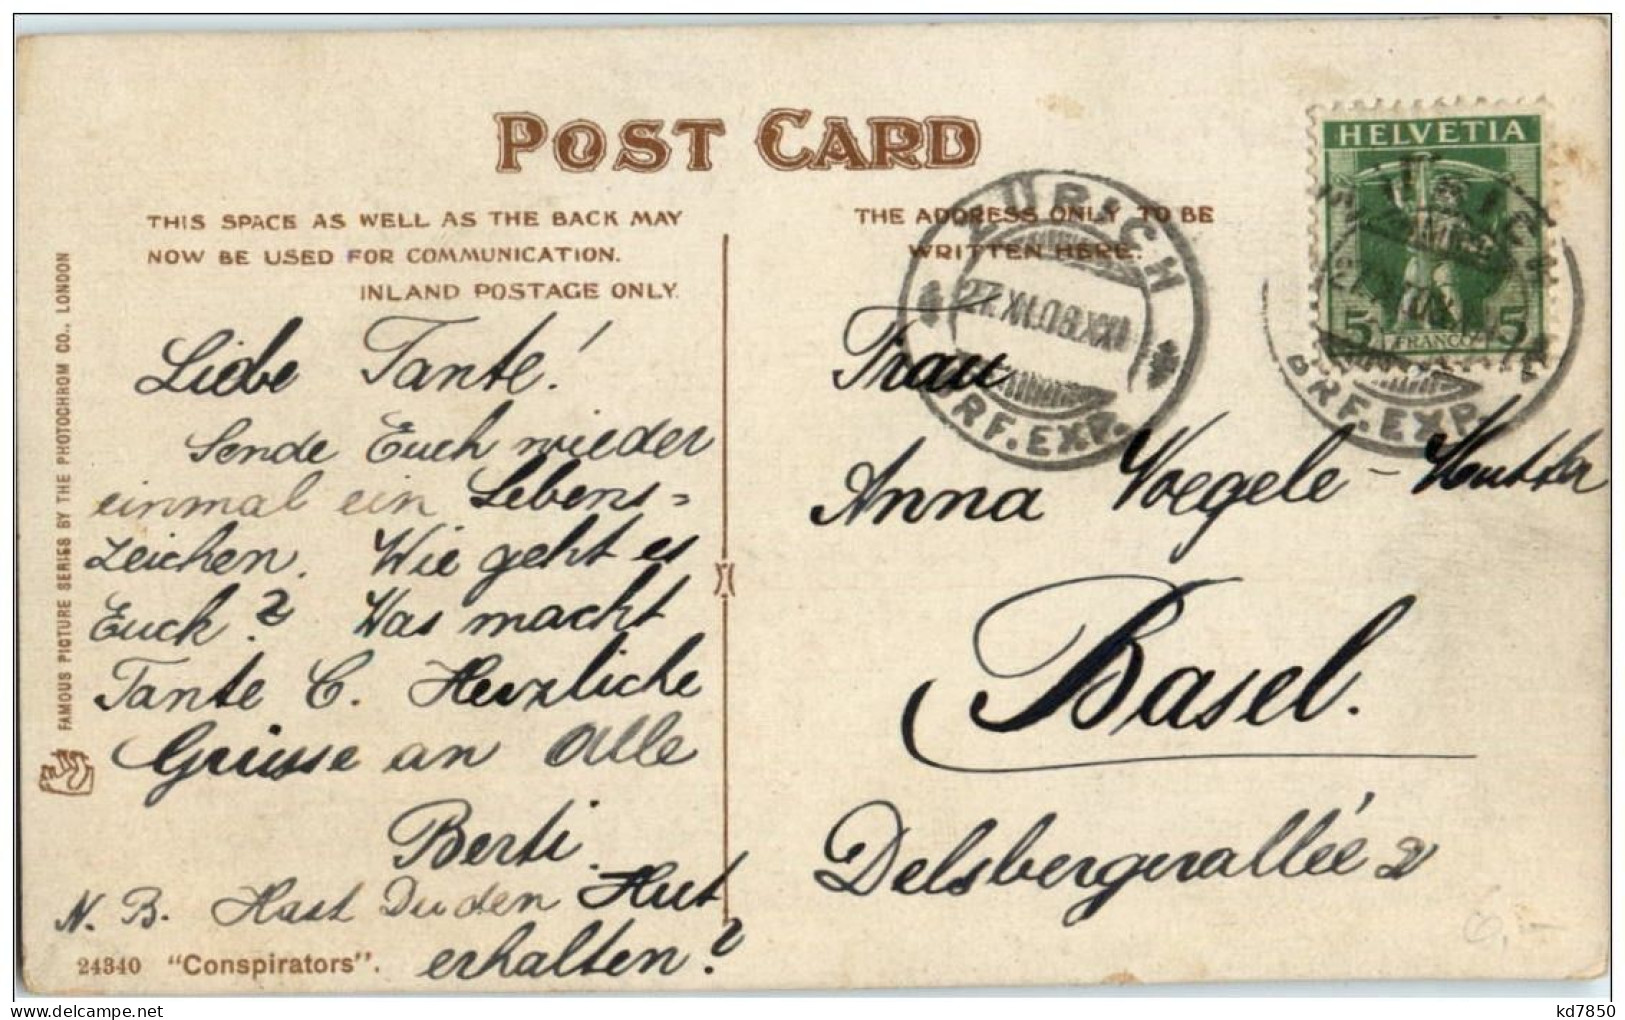 POST CARD
THIS SPACE AS WELL AS THE BACK MAY
NOW BE USED FOR COMMUNICATION.
INLAND POSTAGE ONLY.
THE ADDRESS ONLY TO BE
WRITTEN HERE.
HELVETIA
5 FRANCO 5
ZÜRICH
27.XII.09.XXII
BRF.EXP.
BRF.EXP.
FAMOUS PICTURE SERIES BY THE PHOTOCHROM CO., LONDON
Liebe Tante!
Sende Euch wieder
einmal ein Lebens=
zeichen. Wie geht es
Euch? Was macht
Tante C. Herzliche
Grüsse an Alle
Berti.
N. B. Hast Du den Hut
erhalten?
24340 "Conspirators".
Frau
Anna Voegele-
Basel.
Delsbergerallée 2
6,-
kd7850